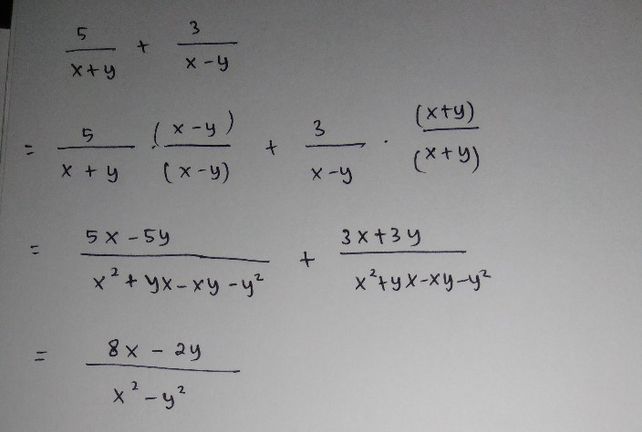 5/(x+y) + 3/(x-y)
= 5/(x+y) · (x-y)/(x-y) + 3/(x-y) · (x+y)/(x+y)
= (5x-5y)/(x²+yx-xy-y²) + (3x+3y)/(x²+yx-xy-y²)
= (8x-2y)/(x²-y²)